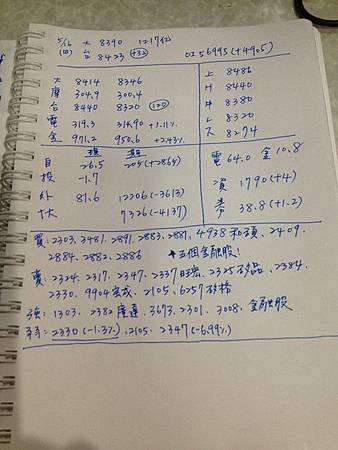 5/16 大 8390 1217(億)
(四) 台 8423 (+32) OI 56995 (+4905)
大 8414 8346
摩 304.9 300.4
台 8440 8320 (120)
電 319.3 314.90 +1.11%
金 971.2 950.6 +2.43%
上 8486
H 8440
中 8380
L 8320
下 8274
現 期
自 26.5 205(+2864)
投 -1.7
外 81.6 12206(-3613)
十大 7326(-4137)
電 64.0 金 10.8
資 1790(+4)
券 38.8(+1.2)
買:2303、3481、2891、2883、2881、4938和碩、2409、
2884、2882、2886 五個金融股!
賣:2324、2317、2347、2337旺宏、2325矽品、2384、
2330、9904寶成、2105、6257矽格
強:1303、2382廣達、3673、2301、3008、金融股
弱:2330(-1.3%)、2105、2347(-6.99%)